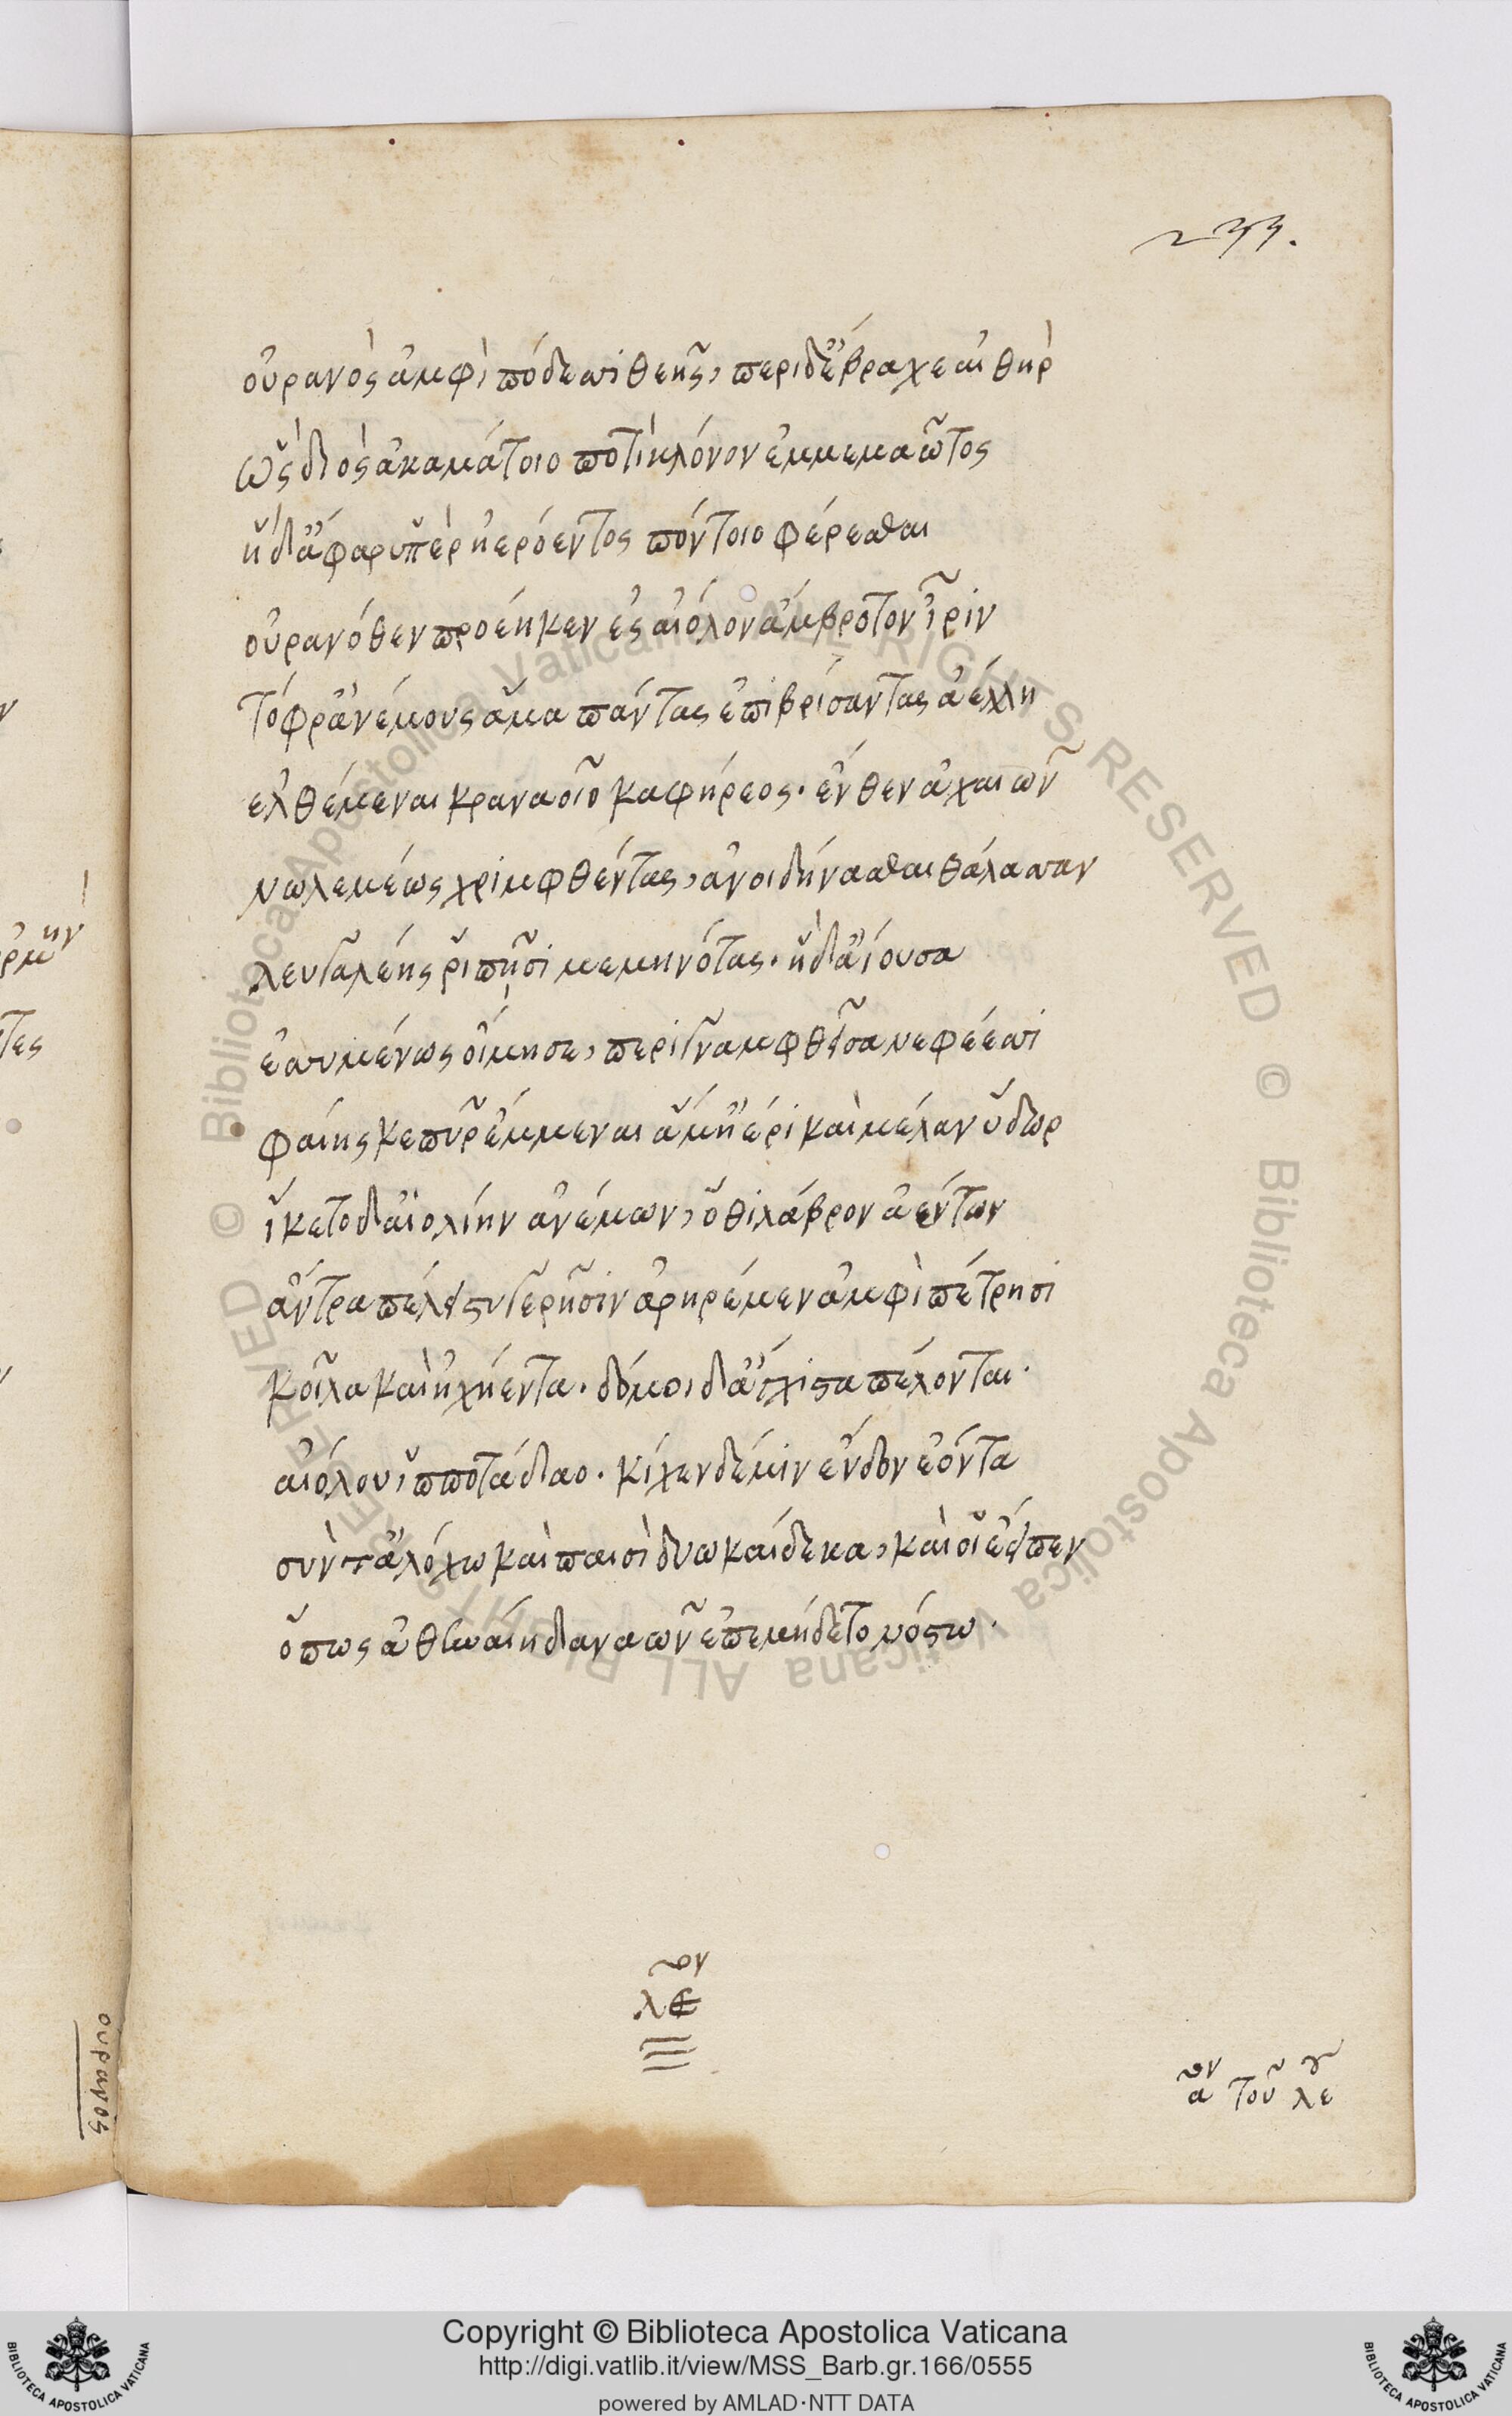 233.
οὐρανὸς ἀμφὶ πόδεσσι θεῆς, περὶ δ' ἔβραχε αἰθὴρ
ὣς διὸς ἀκαμάτοιο ποτὶ κλόνον ἐμμεμαῶτος
ἣ δ' ἄφαρ ὑπὲρ ἠερόεντος πόντοιο φέρεσθαι
οὐρανόθεν προέηκεν ἐς αἰόλον ἄμβροτον ἶριν
τόφρ' ἀνέμους ἅμα πάντας ἐπιβρίσαντας ἀέλλῃ
ἐλθέμεναι κραναοῖο καφήρεος. ἔνθεν ἀχαιῶν
νωλεμέως χριμφθέντας, ἀνοιδήνασθαι θάλασσαν
λευγαλέῃς ῥιπῇσι μεμηνότας. ἣ δ' ἀΐουσα
ἐσσυμένως οἴμησε, περιγναμφθεῖσα νεφέεσσι
φαίης κε πῦρ ἔμμεναι ἅμ' ἠέρι καὶ μέλαν ὕδωρ
ἵκετο δ' αἰολίην ἀνέμων, ὅθι λάβρον ἀέντων
ἄντρα πέλει στυγερῇσιν ἀρηρέμεν ἀμφὶ πέτρῃσι
κοῖλα καὶ ἠχήεντα. δόμοι δ' ἄγχιστα πέλονται.
αἰόλου ἱπποτάδαο. κίχεν δέ μιν ἔνδον ἐόντα
σύν τ' ἀλόχῳ καὶ παισὶ δυωκαίδεκα, καί οἱ ἔειπεν
ὅπως ἀθηναίη δαναῶν ἐπεμήδετο νόστῳ.
λε ον
α ον τοῦ λε ου
ουρανός
Copyright © Biblioteca Apostolica Vaticana
http://digi.vatlib.it/view/MSS_Barb.gr.166/0555
powered by AMLAD·NTT DATA